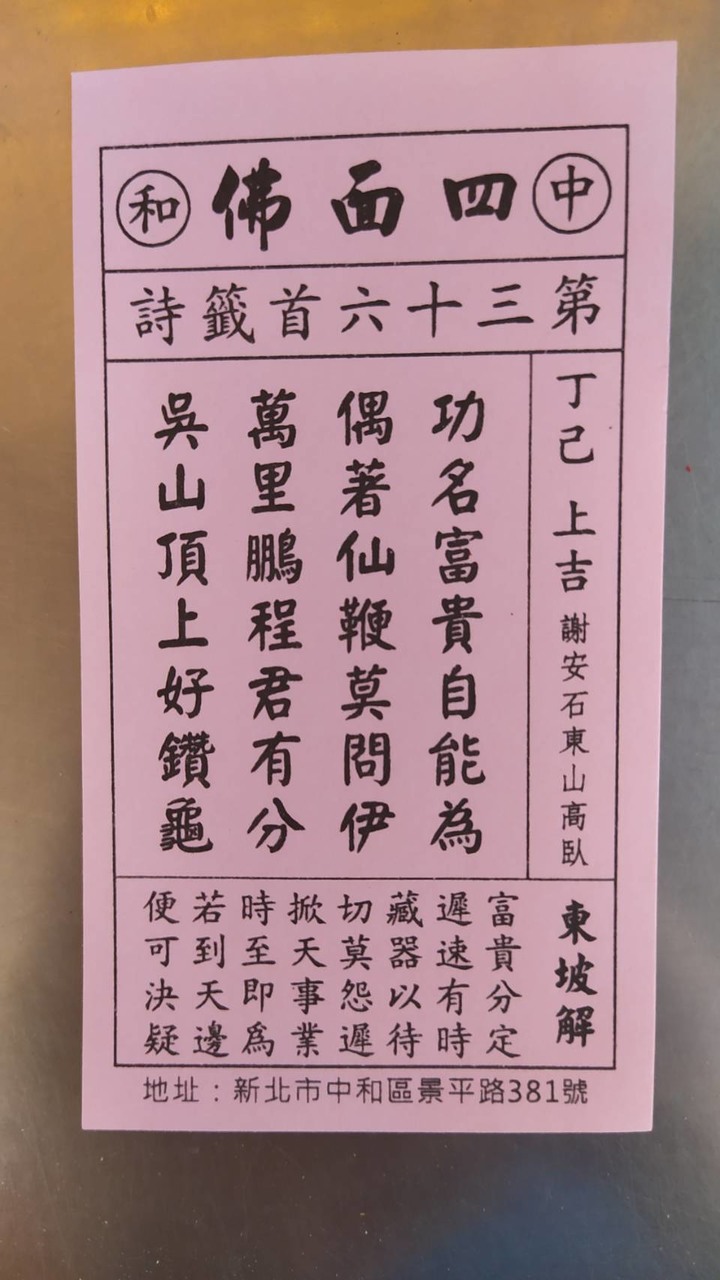 中 四面佛 和
第三十六首籤詩
丁己 上吉 謝安石東山高臥
功名富貴自能為
偶著仙鞭莫問伊
萬里鵬程君有分
吳山頂上好鑽龜
東坡解
富貴分定
遲速有時
藏器以待
切莫怨遲
掀天事業
時至即為
若到天邊
便可決疑
地址：新北市中和區景平路381號